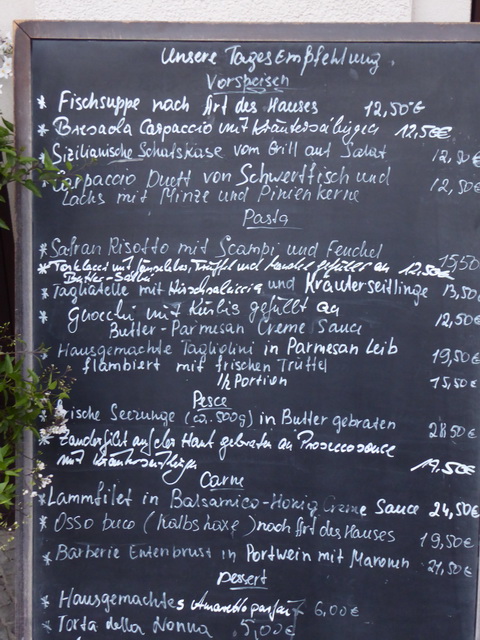 Unsere TagesEmpfehlung.
Vorspeisen
* Fischsuppe nach Art des Hauses 12,50€
* Bresaola Carpaccio mit Kräutersaitlingen 12,50€
* Sizilianische Schafskäse vom Grill auf Salat 12,50€
* Carpaccio Duett von Schwertfisch und 12,50€
Lachs mit Minze und Pinienkerne
Pasta
* Safran Risotto mit Scampi und Fenchel 15,50
* mit Trüffel und gefüllt an 12,50€
Butter-Salbei
* Tagliatelle mit Hirschsalsiccia und Kräuterseitlinge 13,50
* Gnocchi mit Kürbis gefüllt an 12,50€
Butter-Parmesan Creme Sauce
* Hausgemachte Tagliolini in Parmesan Leib 19,50€
flambiert mit frischen Trüffel
1/2 Portion 15,50€
Pesce
* ische Seezunge (ca. 500g) in Butter gebraten 28,50€
* Zanderfilet auf der Haut gebraten an Proseccosauce
mit Kräuterseitlingen 19,50€
Carne
* Lammfilet in Balsamico-Honig Creme Sauce 24,50€
* Osso buco (Kalbshaxe) nach Art des Hauses 19,50€
* Barberie Entenbrust in Portwein mit Maronen 21,50€
Dessert
* Hausgemachtes Amarettoparfait 6,00€
* Torta della Nonna 5,00€